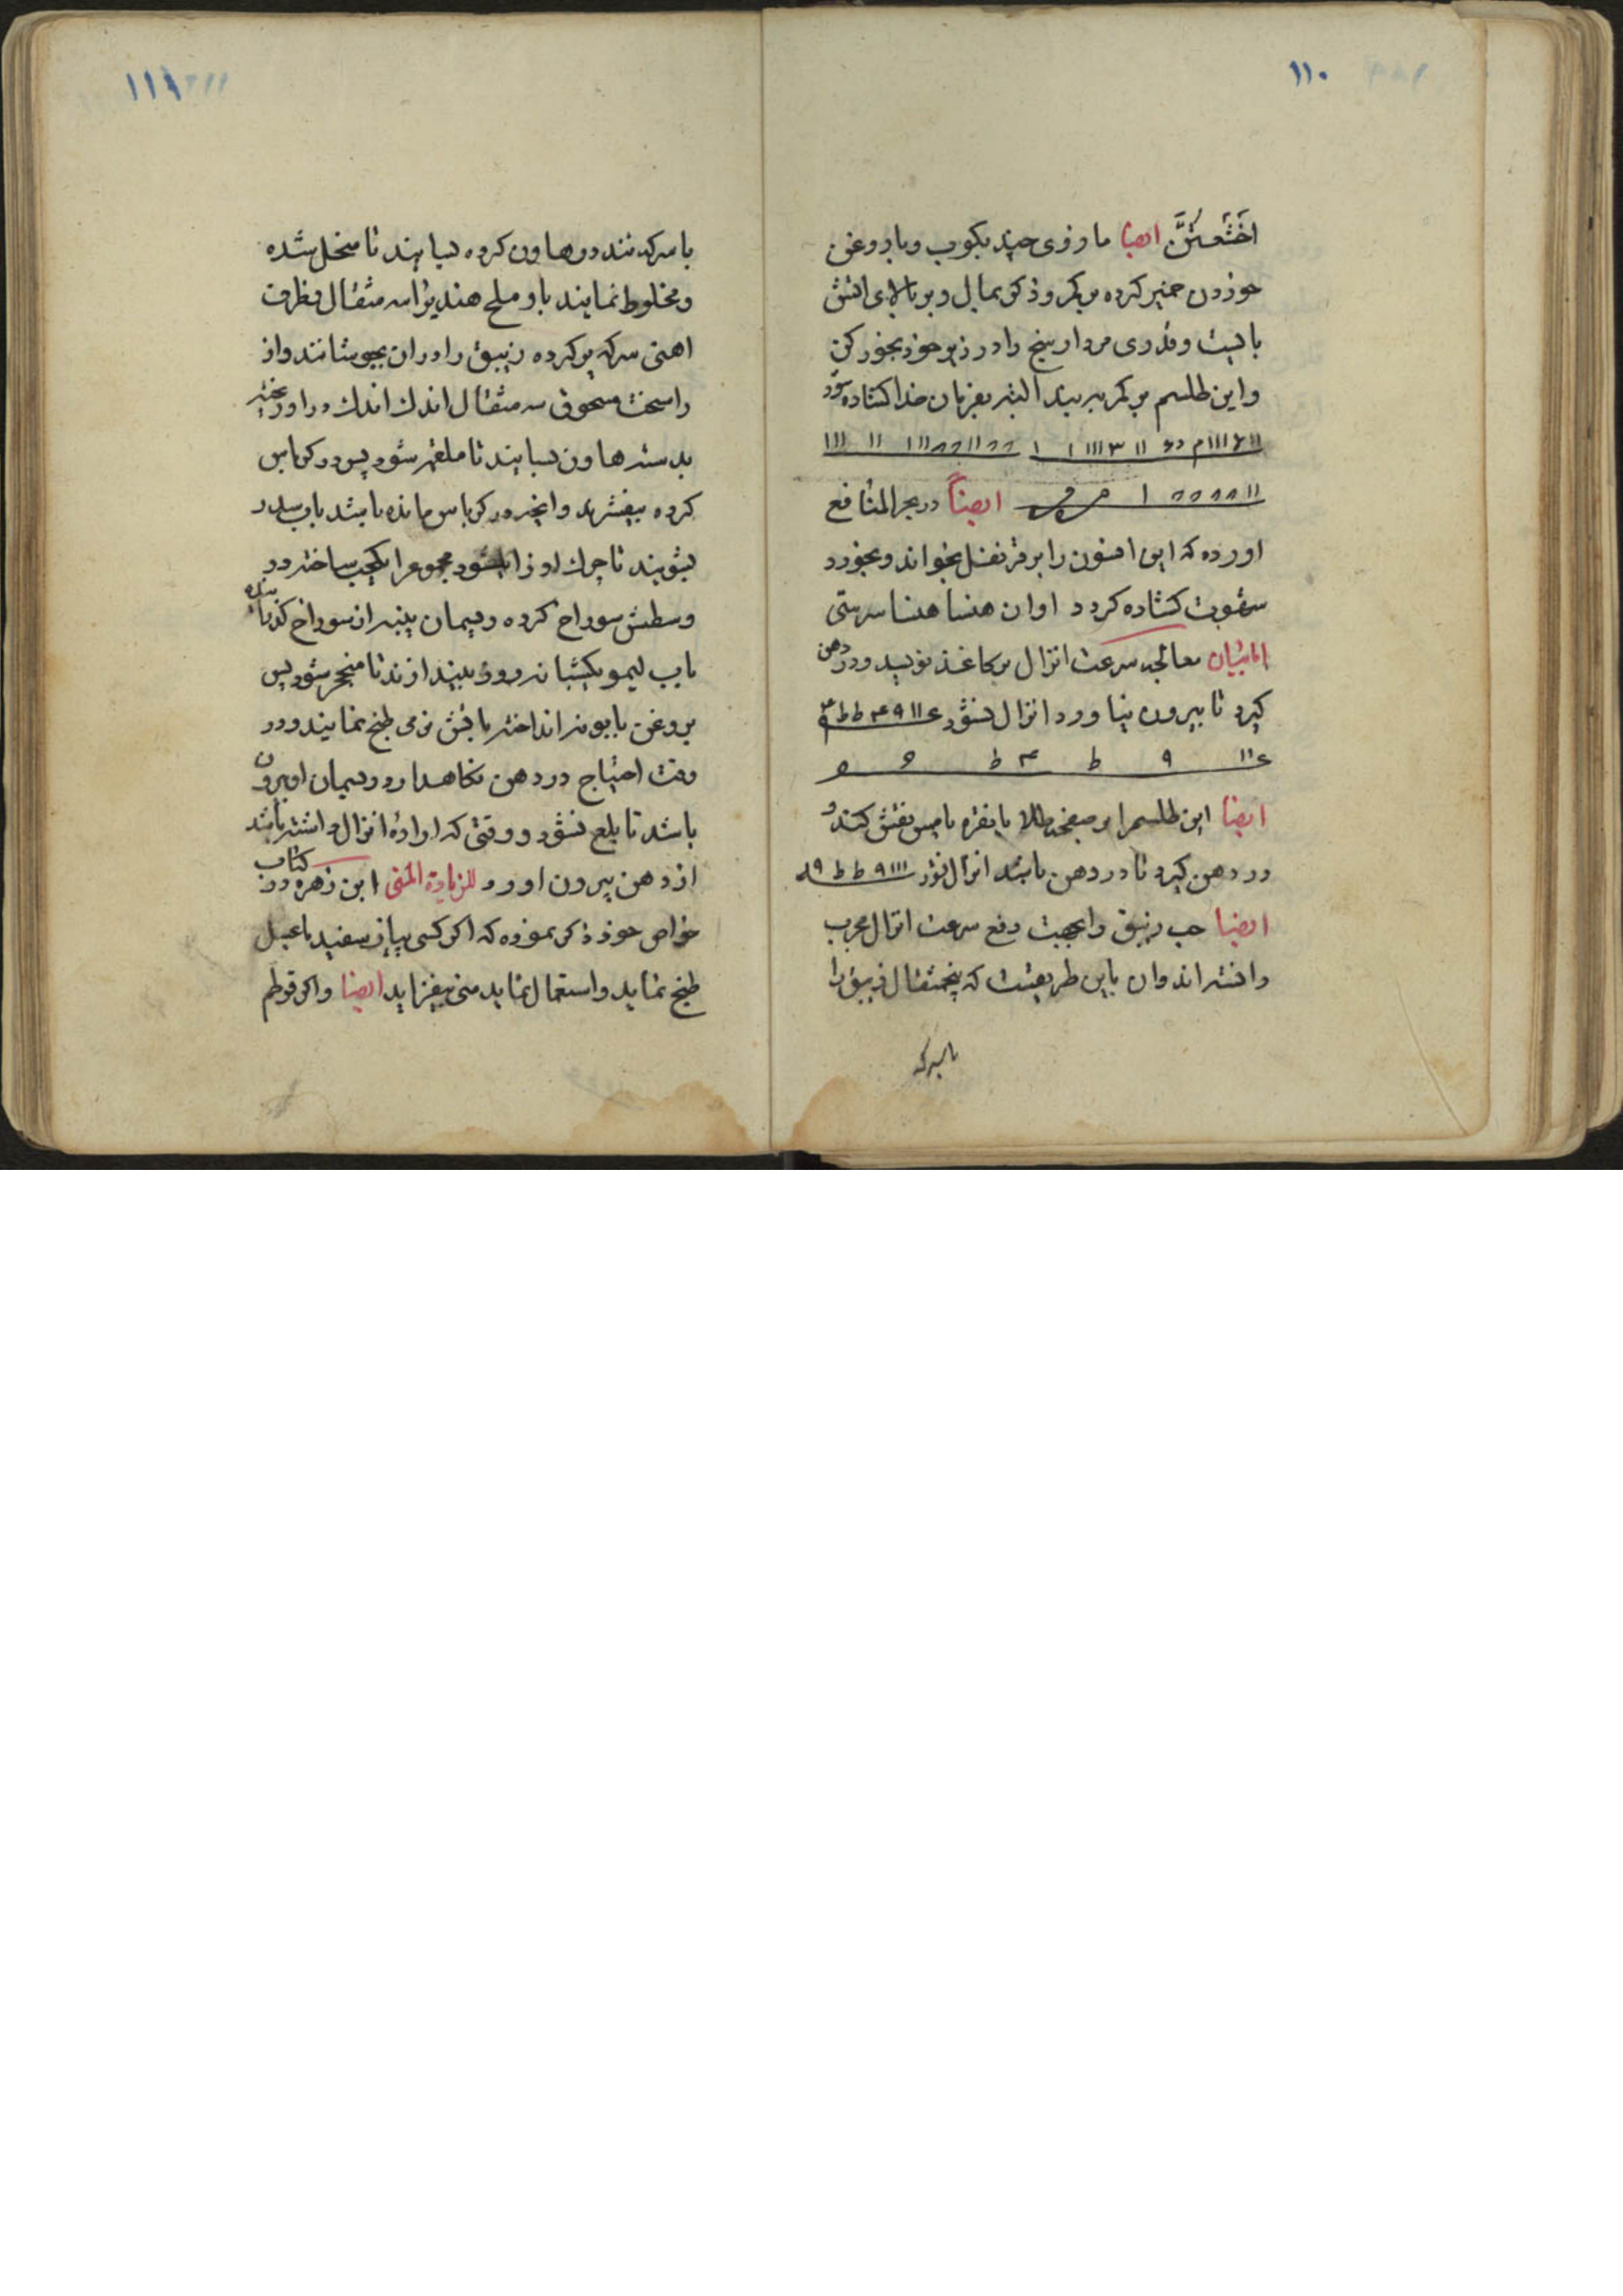 ۱۱۰
ایضا مازوی چند بکوب و با روغن
خوردن خمیر کرده بر کمر و ذکر بمال و بر بالای اتش
بایست و قدری مردار سنج را در زیر خود بخور کن
و این طلسم بر کمر بربند البته بفرمان خدا کشاده شود
ایضاً در بحر المنافع
اورده که این افسون را بر قرنفل بخواند و بخورد
کشاده کردد اوان هنسا هنسا سرستی
معالجه سرعت انزال بر کاغذ نویسد و در دهن
کیرد تا بیرون نیاورد انزال نشود
ایضا این طلسم را بر صفحه طلا یا نقره یا مس نقش کند و
در دهن کیرد تا در دهن باشد انزال نشود
ایضا حب زیبق را بجهت دفع سرعت انزال مجرب
دانسته اند و ان باین طریقست که پنجمثقال زیبق را
باسرکه
۱۱۱
با سرکه تند در هاون کرده بسایند تا منحل شده
و مخلوط نمایند با و ملح هندیرا سه مثقال و ظرف
اهنی سرکه پر کرده زیبق را دران بجوشانند و از
راسخت مسحوق سه مثقال اندک اندک در او ریخته
بدسته هاون بسایند تا ملغم شود پس در کرباس
کرده بیفشرند و انچه در کرباس مانده باشد باب سدر
بشویند تا چرک او زایل شود مجموعرا یکحب ساخته در
وسطش سوراخ کرده و ریسمان پنبه از سوراخ کذرانیده
باب لیمو یکشبانه روز بیندازند تا منجمد شود پس
بروغن بابونه انداخته باتش نرمی طبخ نمایند و در
وقت احتیاج در دهن نکاهدارد و ریسمان او بیرون
باشد تا بلع نشود و وقتی که ارادۀ انزال داشته باشد
از دهن بیرون اورد للزیادة المنی ابن زهره در کتاب
خواص خود ذکر نموده که اکر کسی پیاز سفید با عسل
طبخ نماید و استعمال نماید منی بیفزاید ایضا و اکر قرطم